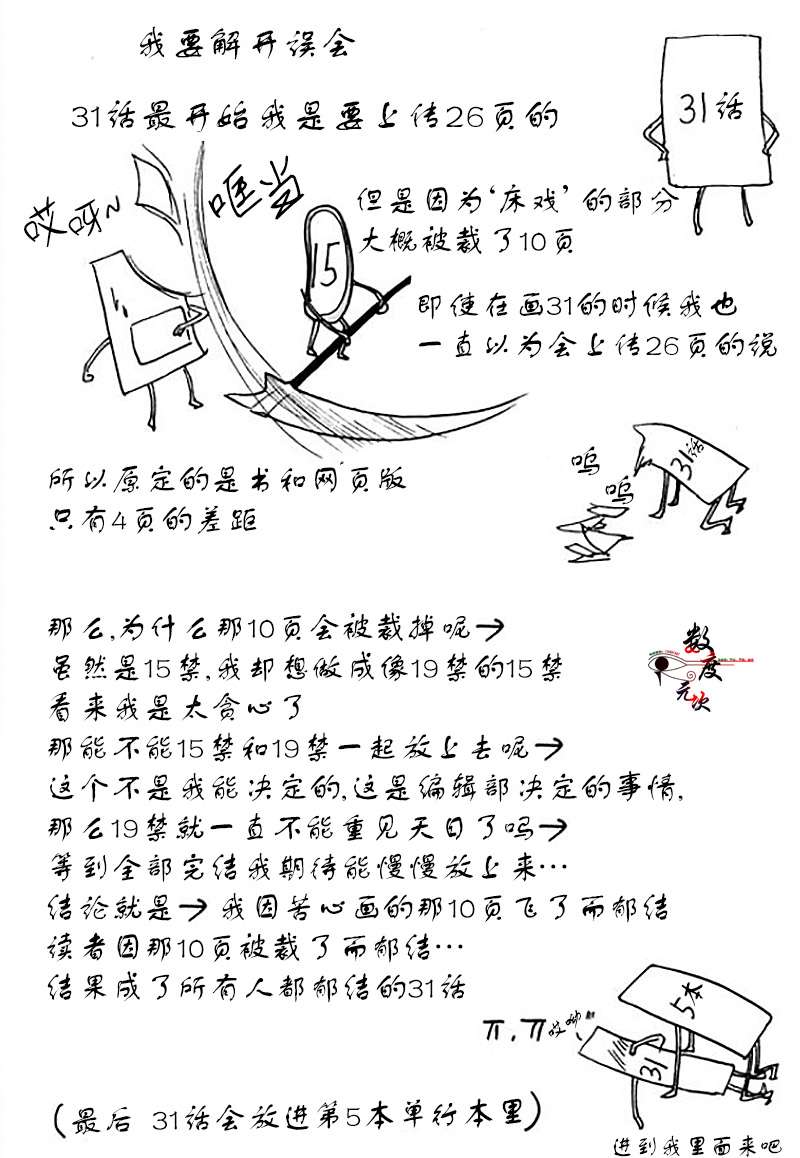 我要解开误会
31话最开始我是要上传26页的
31话
哎呀~
哐当
15
但是因为‘床戏’的部分
大概被裁了10页
即使在画31的时候我也
一直以为会上传26页的说
所以原定的是书和网页版
只有4页的差距
31话
呜
呜
那么,为什么那10页会被裁掉呢→
虽然是15禁,我却想做成像19禁的15禁
看来我是太贪心了
那能不能15禁和19禁一起放上去呢→
这个不是我能决定的,这是编辑部决定的事情,
那么19禁就一直不能重见天日了吗→
等到全部完结我期待能慢慢放上来…
结论就是→ 我因苦心画的那10页飞了而郁结
读者因那10页被裁了而郁结…
结果成了所有人都郁结的31话
数度元次
5本
31
ㅠ.ㅠ
(最后 31话会放进第5本单行本里)
进到我里面来吧